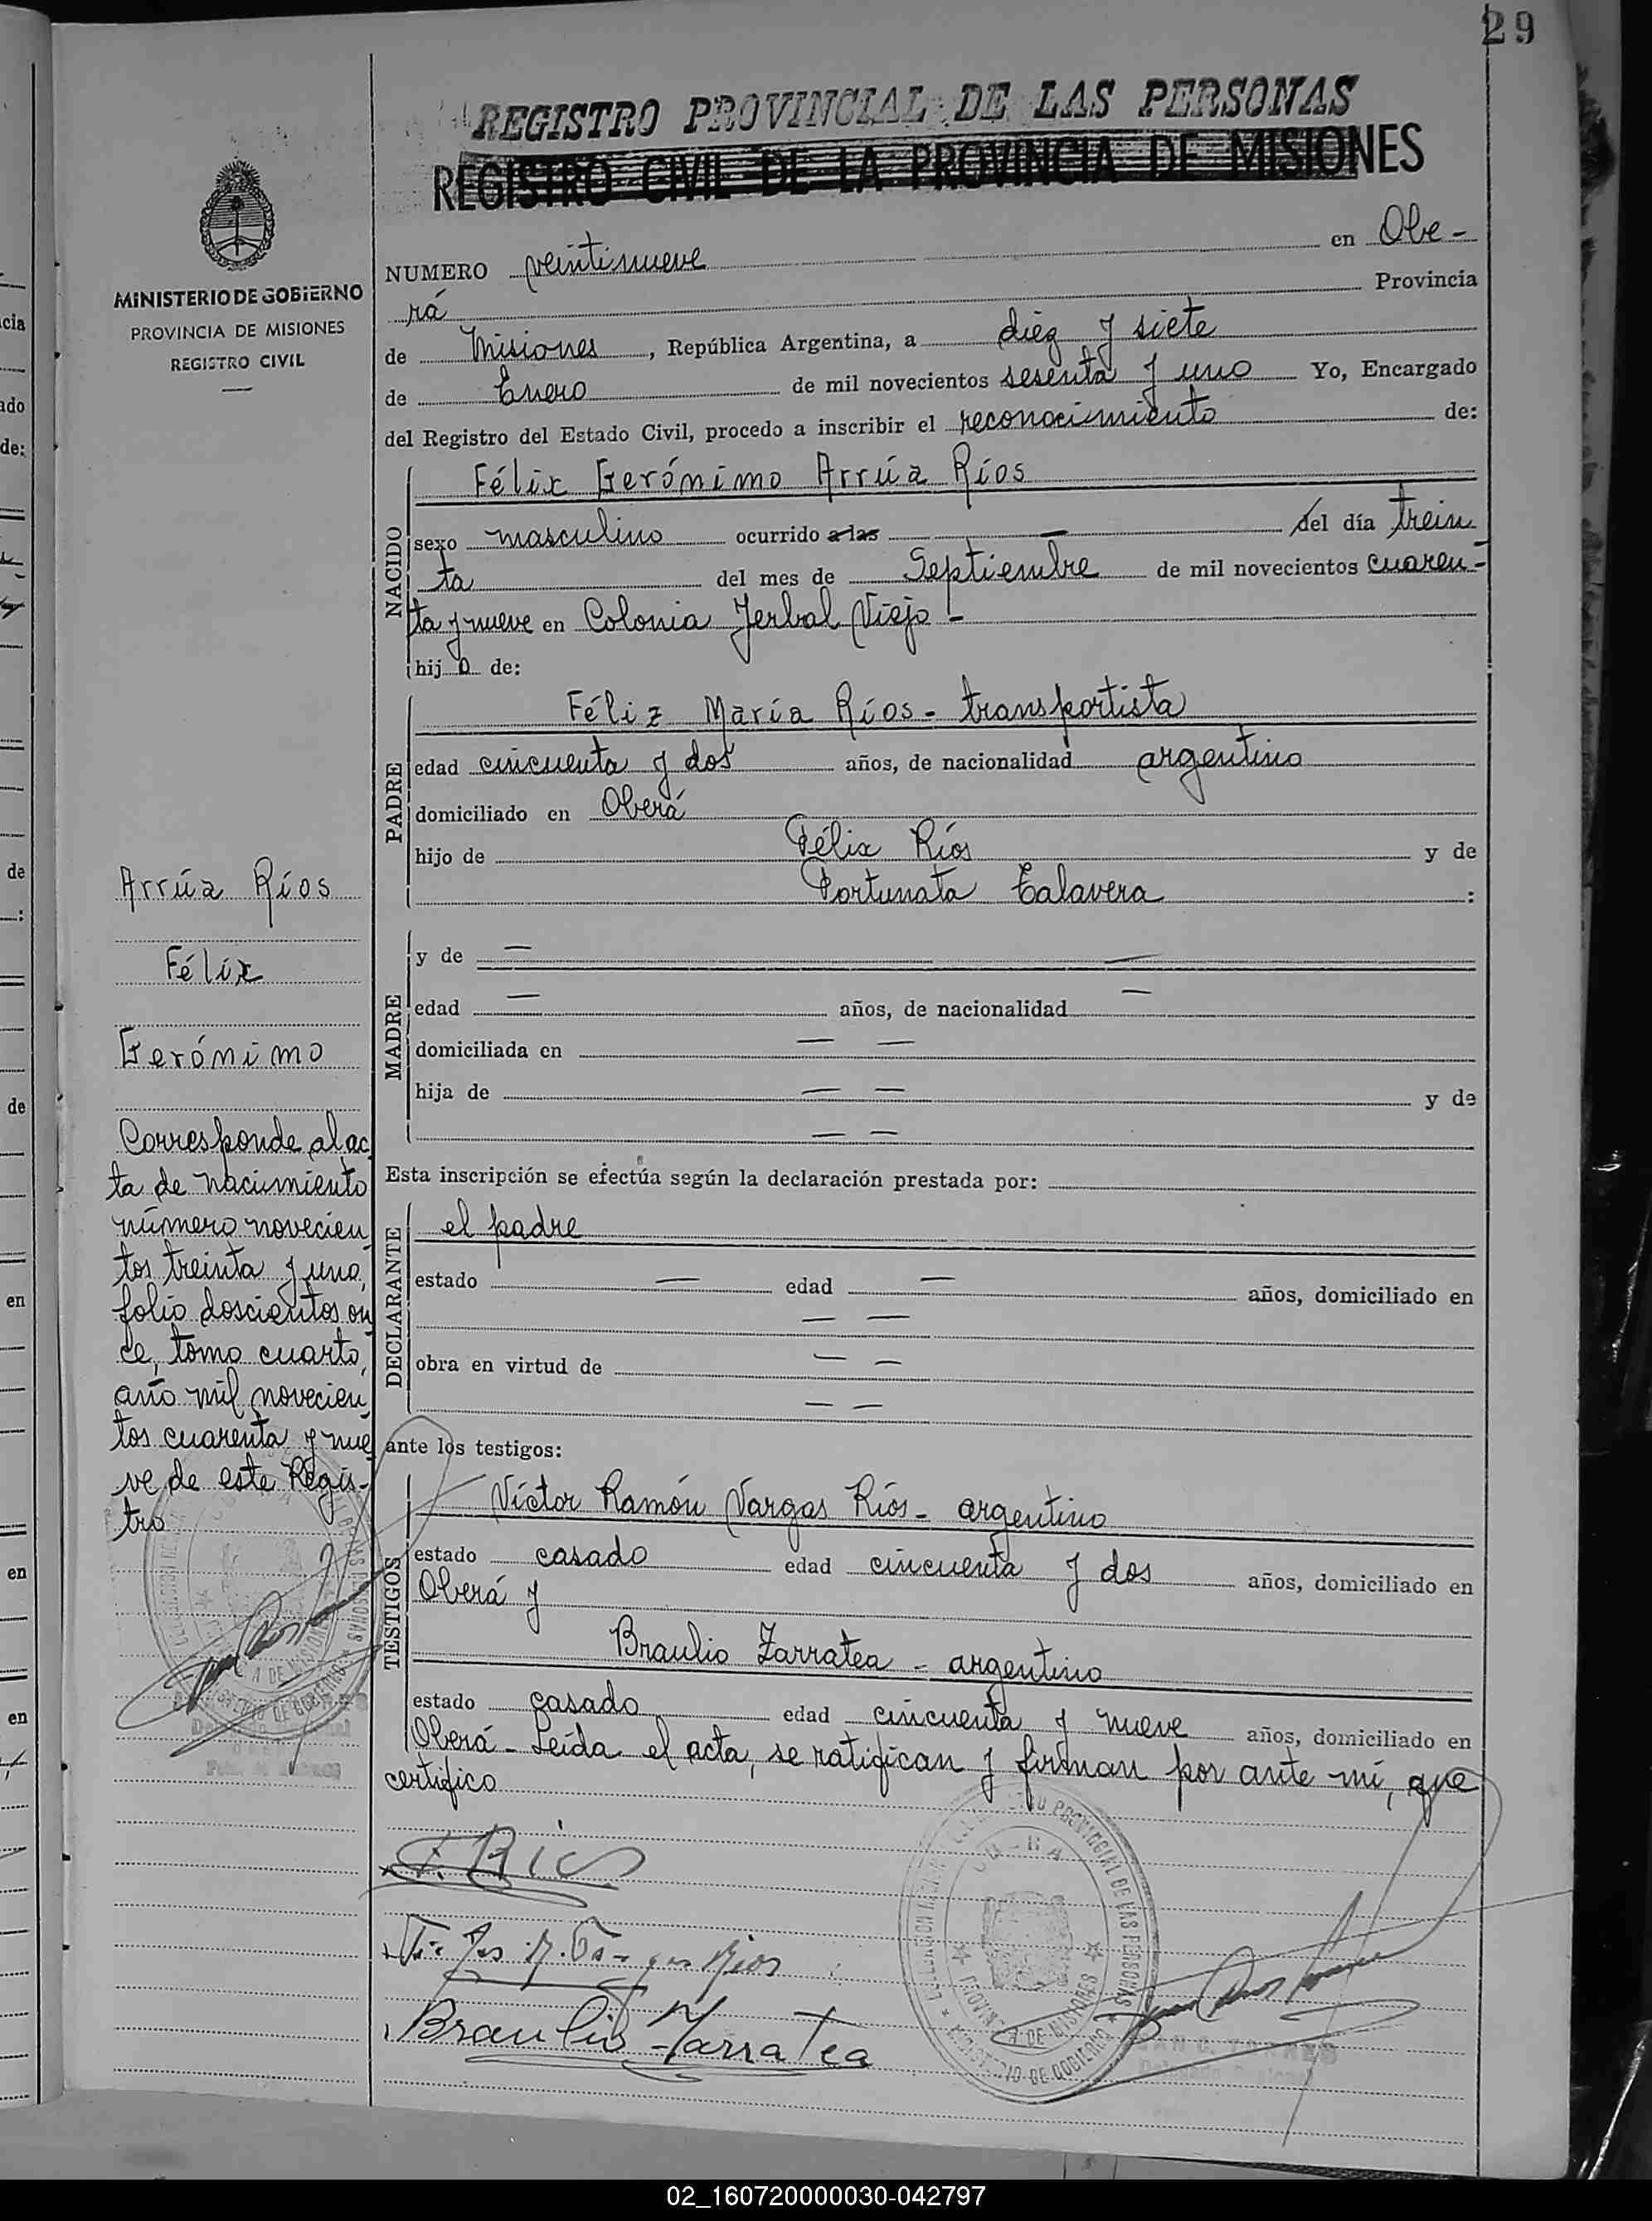 29
REGISTRO PROVINCIAL DE LAS PERSONAS
REGISTRO CIVIL DE LA PROVINCIA DE MISIONES
MINISTERIO DE GOBIERNO
PROVINCIA DE MISIONES
REGISTRO CIVIL
NUMERO veintinueve en Obe-
rá Provincia
de Misiones, República Argentina, a diez y siete
de Enero de mil novecientos sesenta y uno Yo, Encargado
del Registro del Estado Civil, procedo a inscribir el reconocimiento de:
NACIDO
Félix Gerónimo Arrúa Ríos
sexo masculino ocurrido a las — del día trein
ta del mes de Septiembre de mil novecientos cuaren-
ta y nueve en Colonia Yerbal Viejo -
hijo de:
PADRE
Féliz María Ríos - transportista
edad cincuenta y dos años, de nacionalidad argentino
domiciliado en Oberá
hijo de Félix Ríos y de
Fortunata Talavera :
MADRE
y de — —
edad — años, de nacionalidad —
domiciliada en — —
hija de — — y de
— —
Esta inscripción se efectúa según la declaración prestada por:
DECLARANTE
el padre
estado — edad — años, domiciliado en
— —
obra en virtud de — —
— —
ante los testigos:
TESTIGOS
Víctor Ramón Vargas Ríos - argentino
estado casado edad cincuenta y dos años, domiciliado en
Oberá y
Braulio Zarratea - argentino
estado casado edad cincuenta y nueve años, domiciliado en
Oberá - Leída el acta, se ratifican y firman por ante mí, que
certifico
F. Rios
Braulio Zarratea
Arrúa Ríos
Félix
Gerónimo
Corresponde al ac
ta de nacimiento
número novecien
tos treinta y uno,
folio doscientos on
ce, tomo cuarto,
año mil novecien
tos cuarenta y nue
ve de este Regis-
tro
02_160720000030-042797